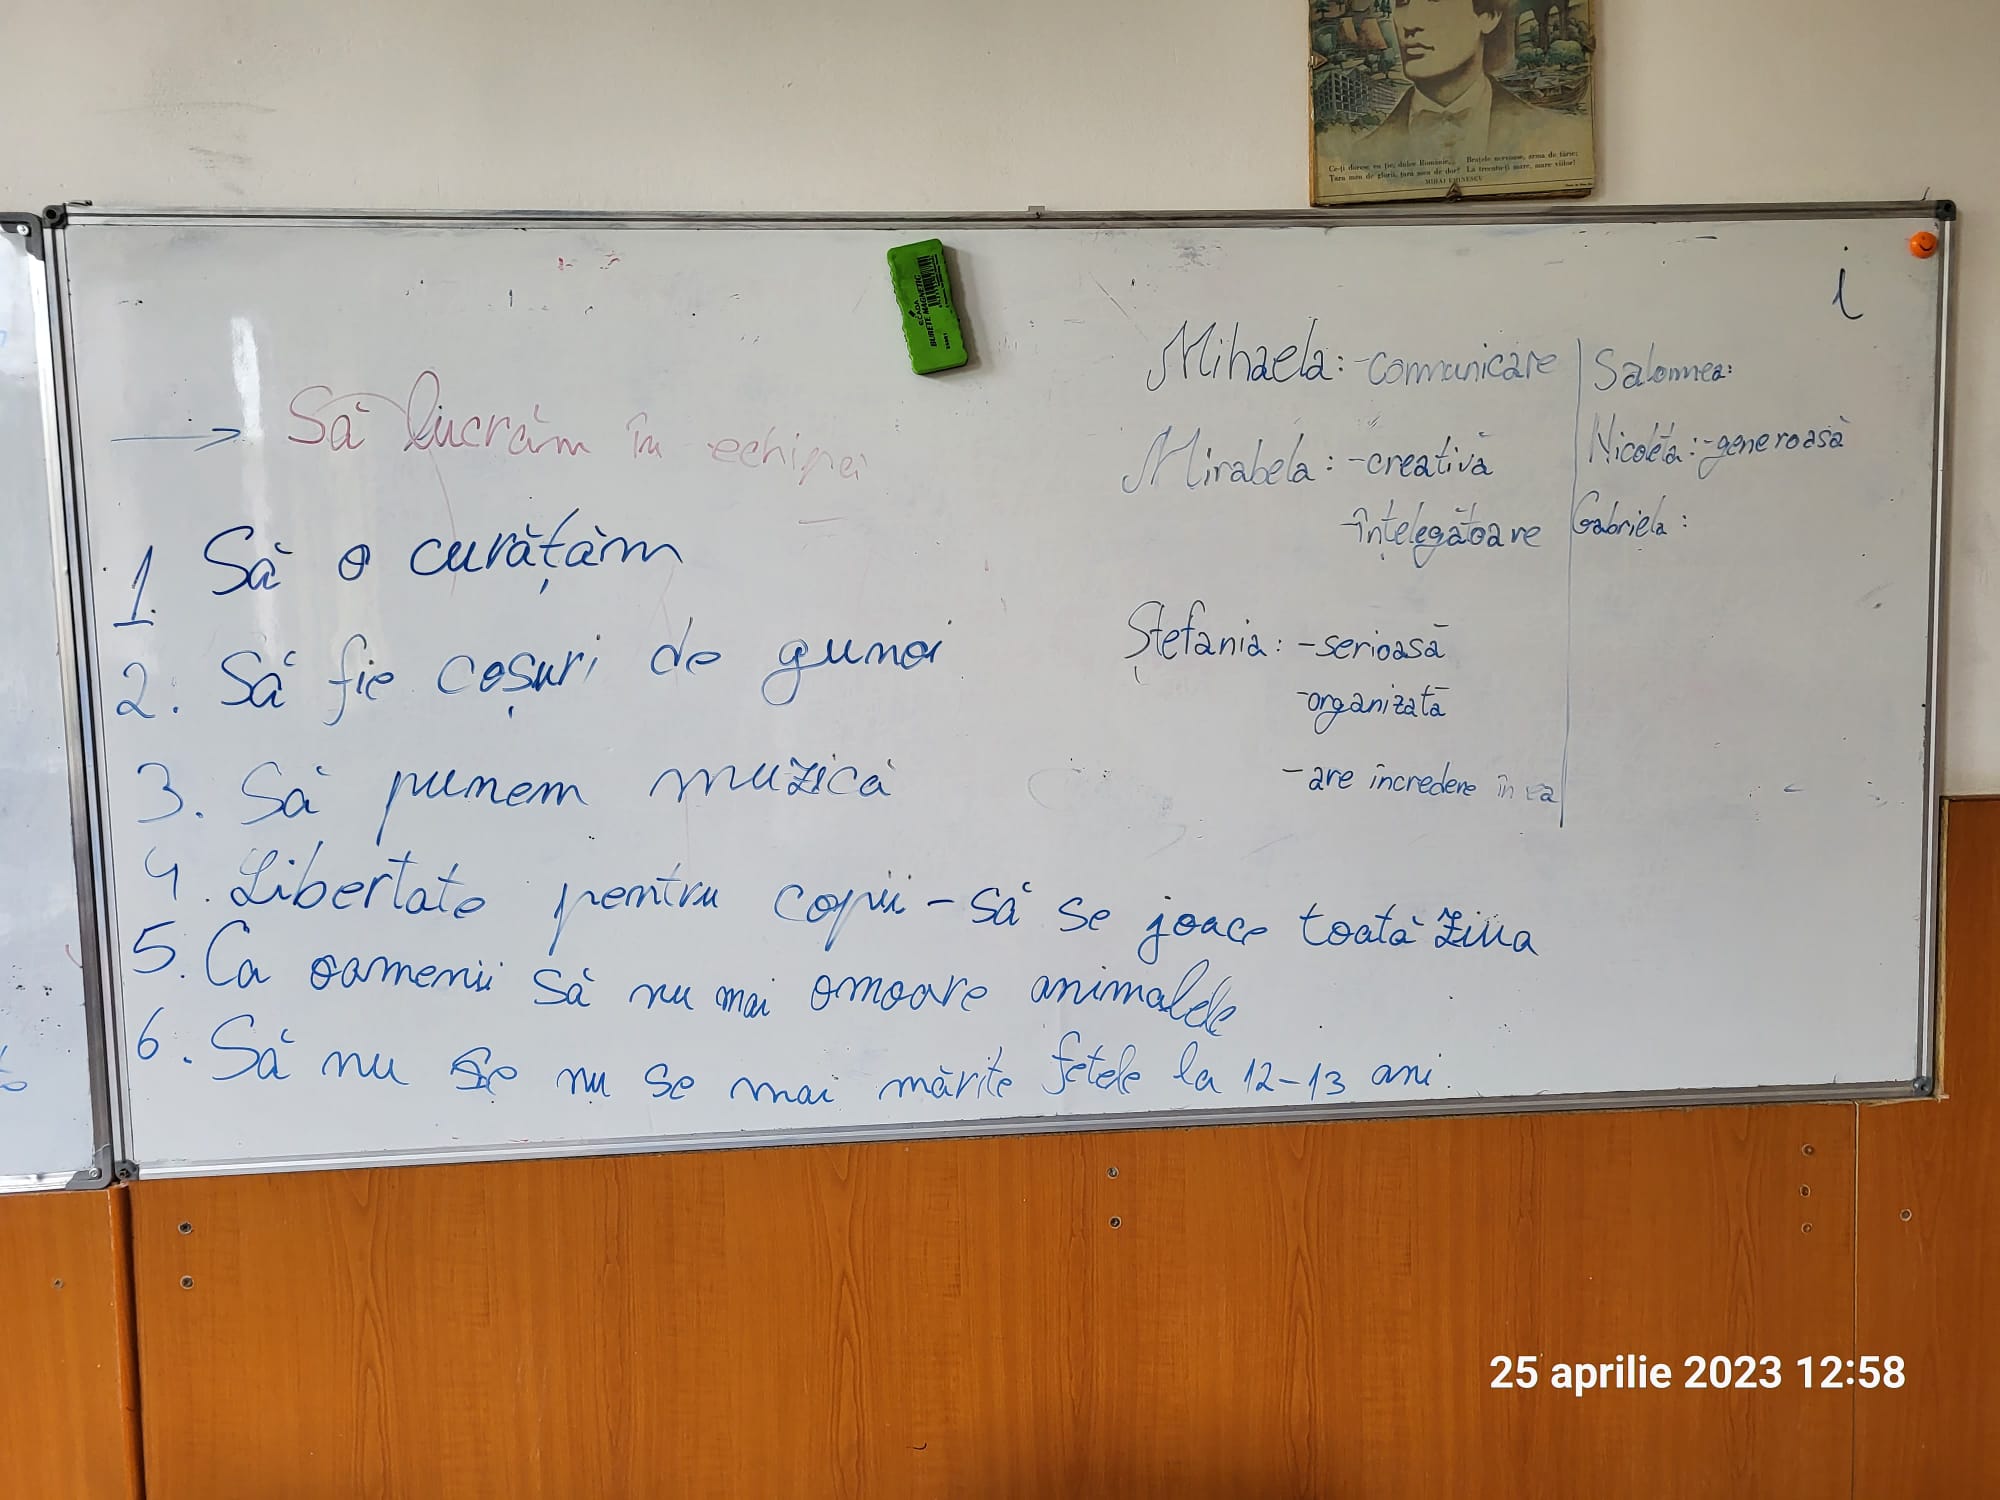 Ce-ți doresc eu ție, dulce Românie,
Țara mea de glorii, țara mea de dor?
Brațele nervoase, arma de tărie,
La trecutu-ți mare, mare viitor!
MIHAI EMINESCU
BURETE MAGNETIC
i
→ Să lucrăm în echipă
1. Să o curățăm
2. Să fie coșuri de gunoi
3. Să punem muzică
4. Libertate pentru copii - să se joace toată ziua
5. Ca oamenii să nu mai omoare animalele
6. Să nu se nu se mai mărite fetele la 12-13 ani.
Mihaela: -comunicare
Mirabela: -creativă
-înțelegătoare
Ștefania: -serioasă
-organizată
-are încredere în ea
Salomeea:
Nicoleta: -generoasă
Gabriela:
25 aprilie 2023 12:58